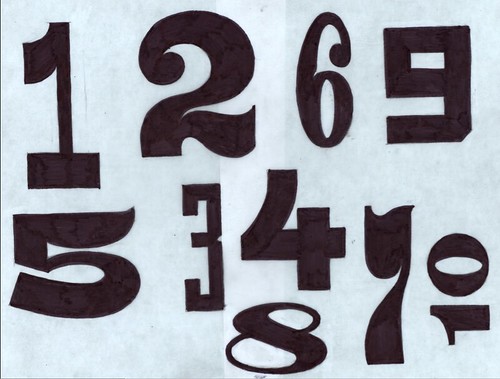 1 2 6 9
5 3 4 7 10
8